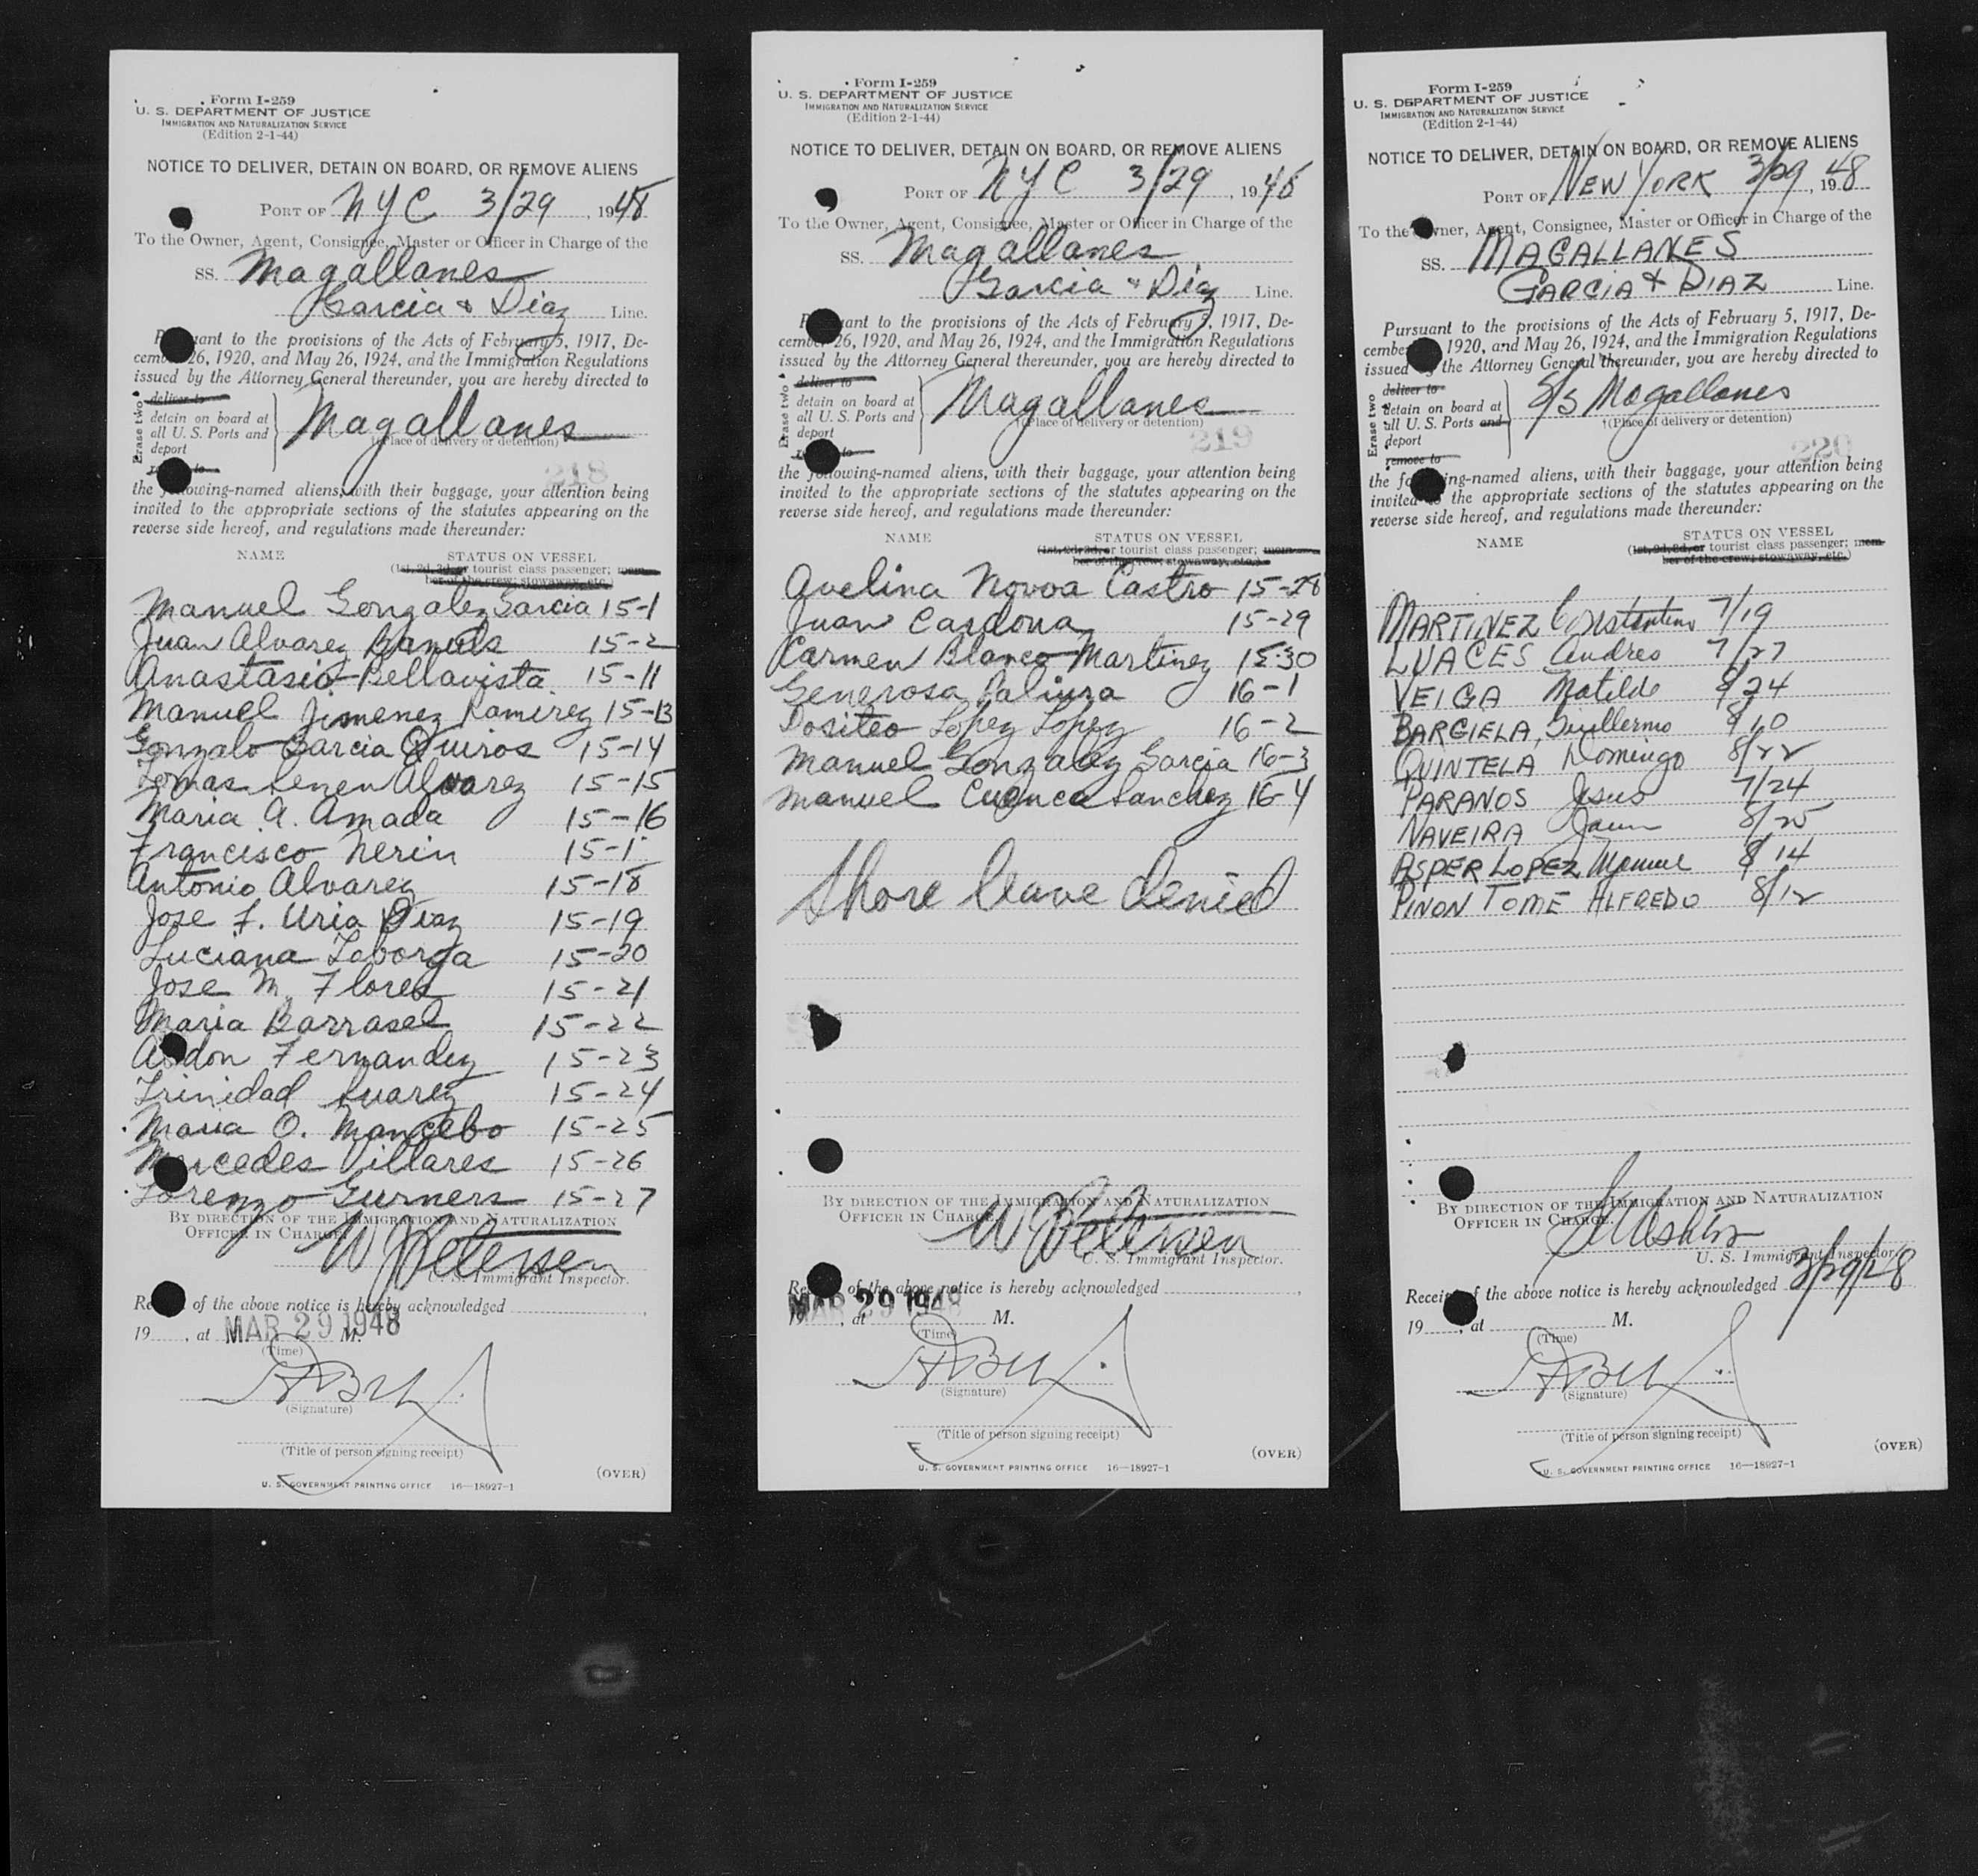 Form I-259
U. S. DEPARTMENT OF JUSTICE
IMMIGRATION AND NATURALIZATION SERVICE
(Edition 2-1-44)
NOTICE TO DELIVER, DETAIN ON BOARD, OR REMOVE ALIENS
PORT OF NYC 3/29, 1948
To the Owner, Agent, Consignee, Master or Officer in Charge of the
SS. Magallanes
Garcia & Diaz Line.
Pursuant to the provisions of the Acts of February 5, 1917, De-
cember 26, 1920, and May 26, 1924, and the Immigration Regulations
issued by the Attorney General thereunder, you are hereby directed to
Erase two
deliver to
detain on board at
all U. S. Ports and
deport
Magallanes
(Place of delivery or detention)
218
the following-named aliens, with their baggage, your attention being
invited to the appropriate sections of the statutes appearing on the
reverse side hereof, and regulations made thereunder:
NAME STATUS ON VESSEL
(1st, 2d, 3d, or tourist class passenger; mem-
ber of the crew; stowaway, etc.)
Manuel Gonzalez Garcia 15-1
Juan Alvarez 15-2
Anastasio Bellavista 15-11
Manuel Jimenez Ramirez 15-13
Gonzalo Garcia Quiros 15-14
Tomas Alvarez 15-15
Maria A. Amada 15-16
Francisco Nerin 15-1
Antonio Alvarez 15-18
Jose F. Uria Diaz 15-19
Luciana Laborga 15-20
Jose M. Flores 15-21
Maria Barrasel 15-22
Fernandez 15-23
Trinidad Suarez 15-24
Maria O. Mancebo 15-25
Mercedes Villares 15-26
Lorenzo Gurners 15-27
BY DIRECTION OF THE IMMIGRATION AND NATURALIZATION
OFFICER IN CHARGE.
W Petersen
U. S. Immigrant Inspector.
Receipt of the above notice is hereby acknowledged
19 , at MAR 29 1948 M.
(Time)
(Signature)
(Title of person signing receipt)
(OVER)
U. S. GOVERNMENT PRINTING OFFICE 16—18927-1
Form I-259
U. S. DEPARTMENT OF JUSTICE
IMMIGRATION AND NATURALIZATION SERVICE
(Edition 2-1-44)
NOTICE TO DELIVER, DETAIN ON BOARD, OR REMOVE ALIENS
PORT OF NYC 3/29, 1948
To the Owner, Agent, Consignee, Master or Officer in Charge of the
SS. Magallanes
Garcia & Diaz Line.
Pursuant to the provisions of the Acts of February 5, 1917, De-
cember 26, 1920, and May 26, 1924, and the Immigration Regulations
issued by the Attorney General thereunder, you are hereby directed to
Erase two
deliver to
detain on board at
all U. S. Ports and
deport
Magallanes
(Place of delivery or detention)
219
the following-named aliens, with their baggage, your attention being
invited to the appropriate sections of the statutes appearing on the
reverse side hereof, and regulations made thereunder:
NAME STATUS ON VESSEL
(1st, 2d, 3d, or tourist class passenger; mem-
ber of the crew; stowaway, etc.)
Avelina Novoa Castro 15-28
Juan Cardona 15-29
Carmen Blanco Martinez 15-30
Generosa 16-1
Dositeo Lopez Lopez 16-2
Manuel Gonzalez Garcia 16-3
Manuel Cuenca Sanchez 16-4
Shore leave denied
BY DIRECTION OF THE IMMIGRATION AND NATURALIZATION
OFFICER IN CHARGE.
W Petersen
U. S. Immigrant Inspector.
Receipt of the above notice is hereby acknowledged
MAR 29 1948
19 , at M.
(Time)
(Signature)
(Title of person signing receipt)
(OVER)
U. S. GOVERNMENT PRINTING OFFICE 16—18927-1
Form I-259
U. S. DEPARTMENT OF JUSTICE
IMMIGRATION AND NATURALIZATION SERVICE
(Edition 2-1-44)
NOTICE TO DELIVER, DETAIN ON BOARD, OR REMOVE ALIENS
PORT OF NEW YORK 3/29, 1948
To the Owner, Agent, Consignee, Master or Officer in Charge of the
SS. MAGALLANES
GARCIA & DIAZ Line.
Pursuant to the provisions of the Acts of February 5, 1917, De-
cember 26, 1920, and May 26, 1924, and the Immigration Regulations
issued by the Attorney General thereunder, you are hereby directed to
Erase two
deliver to
detain on board at
all U. S. Ports and
deport
remove to
S/S Magallanes
†(Place of delivery or detention)
220
the following-named aliens, with their baggage, your attention being
invited to the appropriate sections of the statutes appearing on the
reverse side hereof, and regulations made thereunder:
NAME STATUS ON VESSEL
(1st, 2d, 3d, or tourist class passenger; mem-
ber of the crew; stowaway, etc.)
MARTINEZ Constantino 7/19
LUACES Andres 7/27
VEIGA Matilde 8/24
BARGIELA, Guillermo 8/10
QUINTELA Domingo 8/22
PARANOS Jesus 7/24
NAVEIRA Juan 8/25
ASPER LOPEZ Manuel 8/14
PINON TOME ALFREDO 8/12
BY DIRECTION OF THE IMMIGRATION AND NATURALIZATION
OFFICER IN CHARGE.
U. S. Immigrant Inspector.
Receipt of the above notice is hereby acknowledged 3/29/48
19 , at M.
(Time)
(Signature)
(Title of person signing receipt)
(OVER)
U. S. GOVERNMENT PRINTING OFFICE 16—18927-1